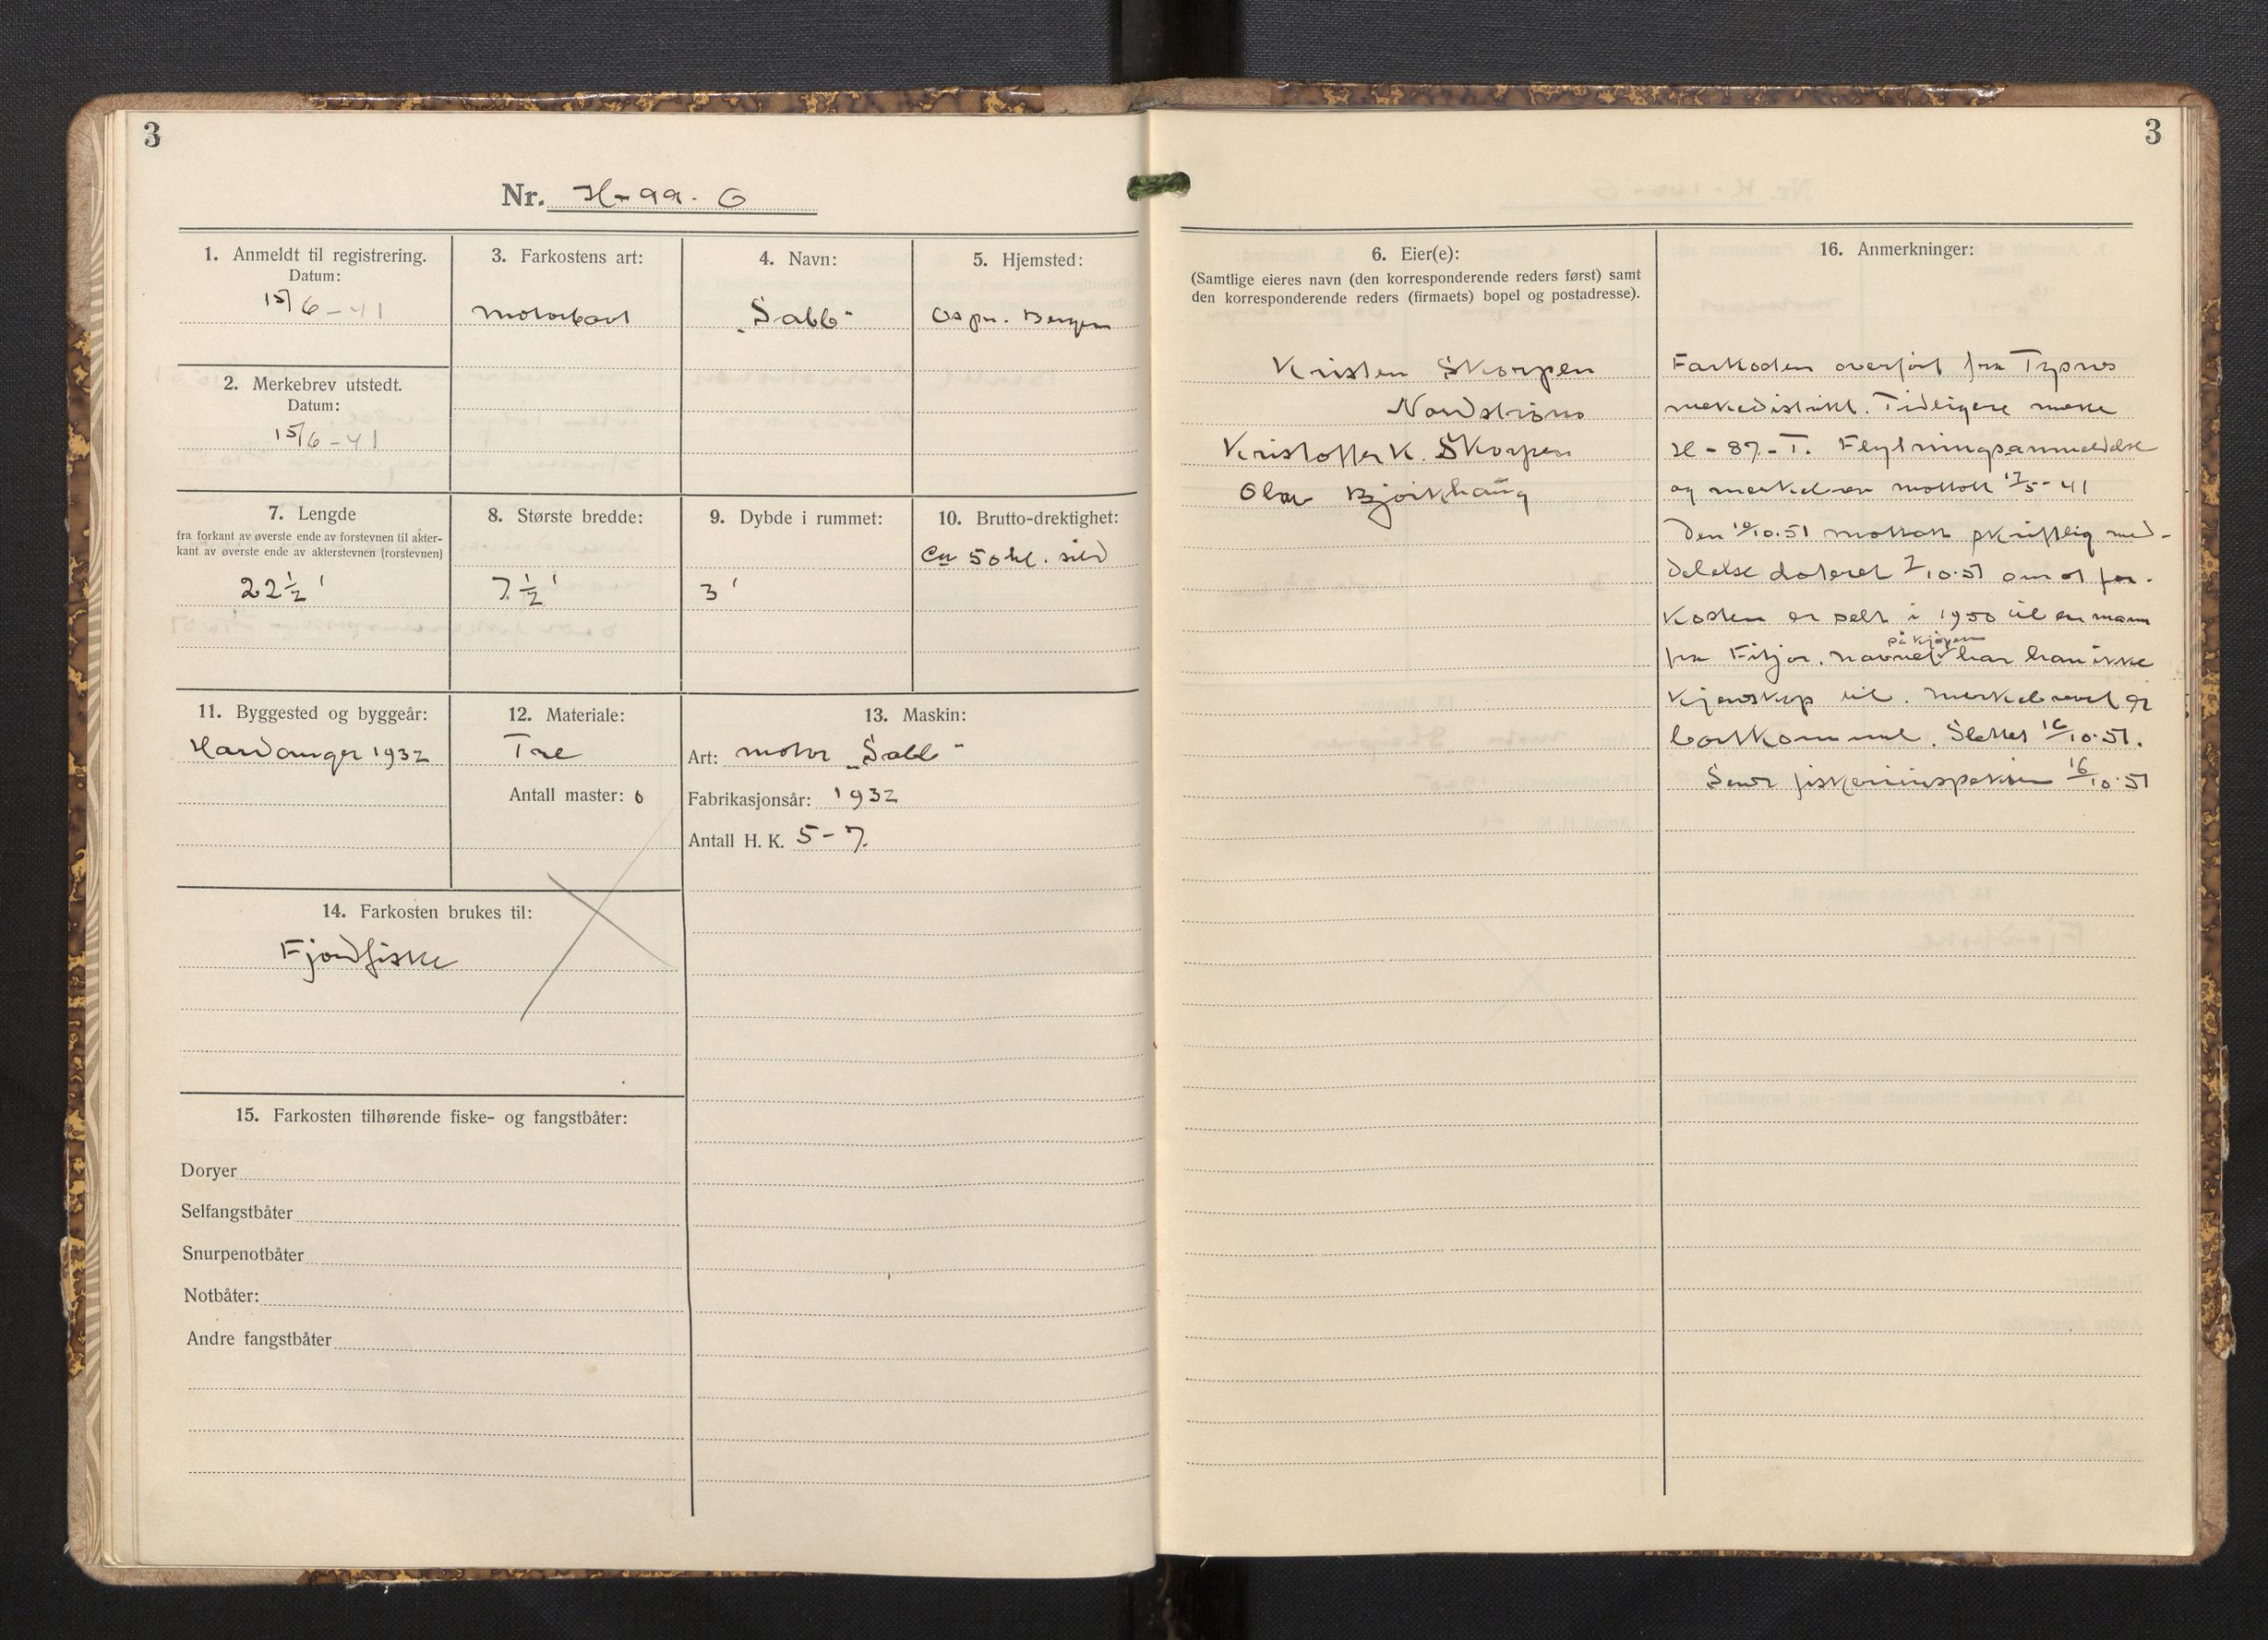 3
Nr. H-99-O
1. Anmeldt til registrering.
Datum:
15/6-41
2. Merkebrev utstedt.
Datum:
15/6-41
3. Farkostens art:
motorbaat
4. Navn:
„Sabb"
5. Hjemsted:
Os pr. Bergen
7. Lengde
fra forkant av øverste ende av forstevnen til akter-
kant av øverste ende av akterstevnen (rorstevnen)
22½'
8. Største bredde:
7½'
9. Dybde i rummet:
3'
10. Brutto-drektighet:
Ca 50 hl. sild
11. Byggested og byggeår:
Hardanger 1932
12. Materiale:
Tre
Antall master: 0
13. Maskin:
Art: motor „Sabb"
Fabrikasjonsår: 1932
Antall H. K. 5-7
14. Farkosten brukes til:
Fjordfiske
15. Farkosten tilhørende fiske- og fangstbåter:
Doryer
Selfangstbåter
Snurpenotbåter
Notbåter:
Andre fangstbåter
3
6. Eier(e):
(Samtlige eieres navn (den korresponderende reders først) samt
den korresponderende reders (firmaets) bopel og postadresse).
Kristen Skorpen
Nordstrøno
Kristoffer K. Skorpen
Olav Bjørkhaug
16. Anmerkninger:
Farkosten overført fra Tysnes
merkedistrikt. Tidligere merke
H-87-T. Flytningsanmeldelse
og merkebrev mottatt 17/5-41
Den 10/10.51 mottatt skriftlig med-
delelse dateret 7/10.51 om at far-
kosten er selt i 1950 til en mann
fra Fitjar. navnet på kjøperen har han ikke
kjenskap til. Merkebrevet er
bortkommet. Slettet 16/10.51.
Sendt fiskeriinspektøren 16/10.51